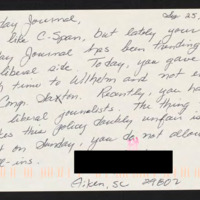 day Journal, Sep 25,
like C-Span, but lately your
day Journal has been tending
liberal side. Today, you gave
time to Wilhelm and not e
Comp. Saxton. Recently, you ha
liberal journalists. The thing
kes this policy doubly unfair is
t on Sunday, you do not allow
ll-ins.
Aiken, SC 29802